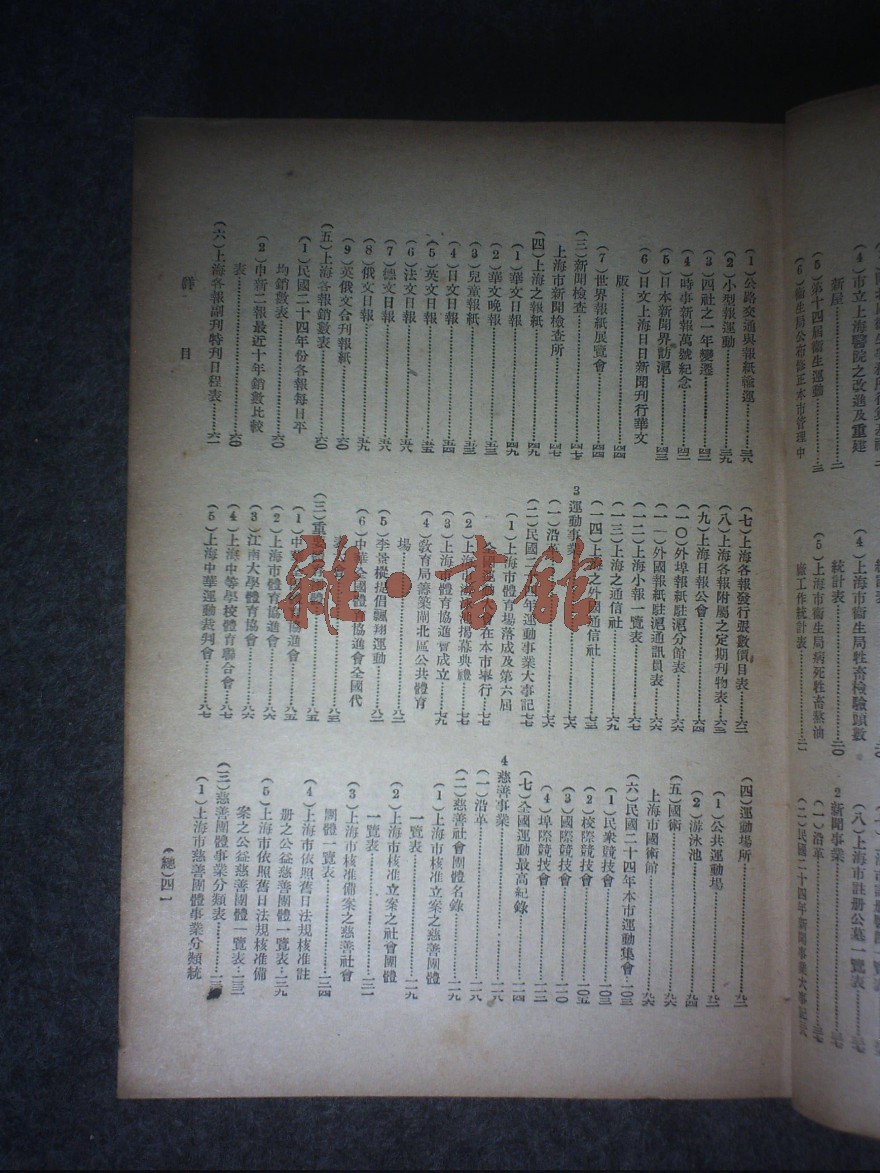 (1)公路交通與報紙輸運…………三六
(2)小型報運動…………三九
(3)四社之一年變遷…………四二
(4)時事新報萬號紀念…………四二
(5)日本新聞界訪滬…………四三
(6)日文上海日日新聞刊行華文
版…………四四
(7)世界報紙展覽會…………四四
(三)新聞檢查…………四七
上海市新聞檢查所…………四七
(四)上海之報紙…………四九
(1)華文日報…………四九
(2)華文晚報…………五三
(3)兒童報紙…………五三
(4)日文日報…………五四
(5)英文日報…………五五
(6)法文日報…………五八
(7)德文日報…………五八
(8)俄文日報…………五九
(9)英俄文合刊報紙…………六0
(五)上海各報銷數表…………六0
(1)民國二十四年份各報每日平
均銷數表…………六0
(2)申新二報最近十年銷數比較
表…………六0
(六)上海各報副刊特刊日程表……六一
(七)上海各報發行張數價目表……六二
(八)上海各報附屬之定期刊物表…六三
(九)上海日報公會…………六四
(一0)外埠報紙駐滬分館表………六六
(一一)外國報紙駐滬通訊員表……六六
(一二)上海小報一覽表…………六七
(一三)上海之通信社…………六九
(一四)上海之外國通信社…………七三
3 運動事業…………七六
(一)沿革…………七六
(二)民國二十四年運動事業大事記七七
(1)上海市體育場落成及第六屆
在本市舉行…七七
(2)上海市 揭幕典禮……七七
(3)上海市體育協進會成立…七九
(4)敎育局籌築閘北區公共體育
場…………八二
(5)李 樅提倡飄翔運動………八二
(6)中華全國體育協進會全國代
…………八三
(三)重 …………八五
(1)中 協進會…………八五
(2)上海市體育協進會…………八六
(3)江南大學體育協會…………八六
(4)上海中等學校體育聯合會……八七
(5)上海中華運動裁判會…………八七
(四)運動場所…………九二
(1)公共運動場…………九二
(2)游泳池…………九四
(五)國術…………九六
上海市國術館…………九六
(六)民國二十四年本市運動集會…一0三
(1)民衆競技會…………一0三
(2)校際競技會…………一0五
(3)國際競技會…………一一0
(4)埠際競技會…………一一二
(七)全國運動最高紀錄…………一一四
4 慈善事業…………一一八
(一)沿革…………一一八
(二)慈善社會團體名錄…………一一九
(1)上海市核准立案之慈善團體
一覽表…………一一九
(2)上海市核准立案之社會團體
一覽表…………一三一
(3)上海市核准備案之慈善社會
團體一覽表…………一三四
(4)上海市依照舊日法規核准註
册之公益慈善團體一覽表…一三九
(5)上海市依照舊日法規核准備
案之公益慈善團體一覽表…一三二
(三)慈善團體事業分類表…………一三
(1)上海市慈善團體事業分類統
詳目
(總)四一
(4)市立上海醫院之改進及重建
新屋…………二
(5)第十四屆衞生運動…………三
(6)衞生局公布修正本市管理中
統計表…………
(4)上海市衞生局牲畜檢驗頭數
統計表…………二0
(5)上海市衞生局病死牲畜熬油
廠工作統計表…………二一
(八)上海市註册公墓一覽表………三七
2 新聞事業…………三七
(一)沿革…………三七
(二)民國二十四年新聞事業大事記
雜·書館